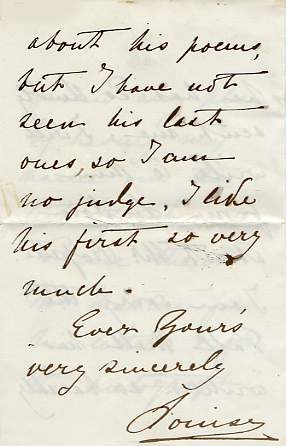 about his poems,
but I have not
seen his last
ones, so I am
no judge, I like
his first so very
much.
Ever Yours
very sincerely
Louise